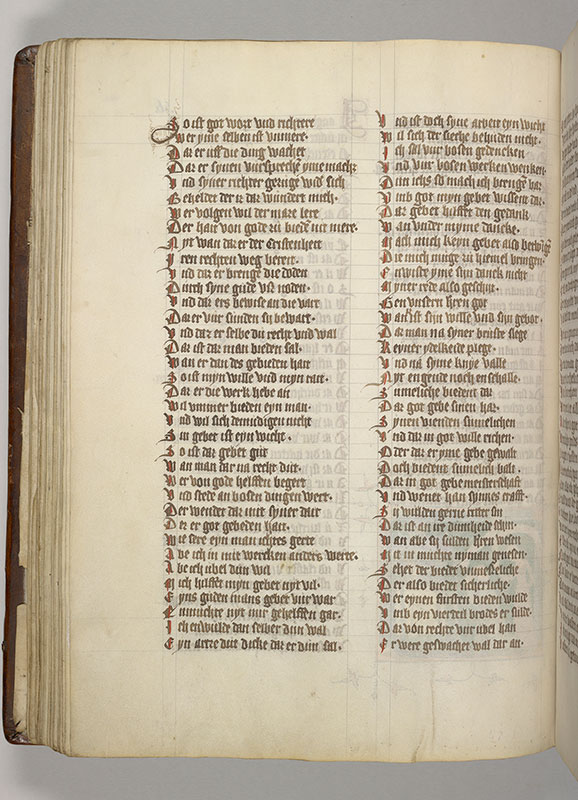 So ist got wort vnd richtere
Wer yme selben ist vnmere·
Dar er vff die ding wachet
Dar er synen vursprechē yme machz
Vnd syner richter genuge wid sich
Behelder der iz dar wundert mich·
Wer volgen wil der mare lere
Der hait von gode zu biedē nit mere·
Nyt wan dar er der cristenheit
Iren rechten weg bereit·
Vnd dar er brenge die doden
Durch syne gude vz noden·
Vnd dar ers bewise an die vart
Dar er vur sunden sij bewart·
Vnd dar er selbe du recht vnd wal
Dar ist dar man bieden sal·
Wan er dan des gebieden hait
So ist myn wille vnd myn rait·
Dar er die werk hebe an
Wil ymmer bieden eyn man·
Vnd wil sich demudigen nicht
Sin gebet ist eyn wicht·
So ist dar gebet gut
Wan man dar na recht dut·
Wer von gode helffen begert
Vnd stede an bosen dingen wert·
Der wender dar mit syner dait
Dar er got gebeden hait·
Wie sere eyn man ichtes gerte
Abe ich in mit wercken anders werte·
Abe ich ubel dun wil
Mich hilffet myn gebet nyt vil·
Eyns guden mans gebet vur war
Enmuchte nyt mir gehelffen gar·
Ich enwulde dan selber dun wal
Eyn artre dut dicke dar er dun sal·
Vnd ist doch syne arbeit eyn wicht
Wil sich der sieche behuden nicht·
Ich sal vur bosen gedencken
Vnd vur bosen wercken wenken·
Dun ichs so mach ich brengē dar
Vmb got myn gebet wissent dar·
Dar gebet hilffet den gedank
Wan vnder myme danck·
Mach mich keyn gebet also
Die mich muge zu hiemel bringen·
Enwiste yme sin danck nicht
Myner rede also geschiet·
Gen vnsern hren got
Wan ist sin wille vnd sin gebot·
Dar man na syner bruste slege
Keyner ydelkeide plege·
Vnd na syme knye valle
Nyt en gende noch en schalle·
Sumeliche biedent dar
Dar got gebe sinen har·
Synen vienden sumelichen
Vnd dar in got wille richen·
Oder dar er yme gebe gewalt
Doch biedent sumelich balt·
Dar in got gebe meisterschaft
Vnd wenet han synnes crafft·
Sij wulden gerne ritter sin
Dar ist an ire dumheide schin·
Wan abe sij sulden hren wesen
Mit in muchte nyman genesen·
Seher der biedet vnmesseliche
Der also biedet sicherliche·
Wer eynen fursten bieden wulde
Vmb eyn vierdeil brodes er sulde·
Dar von rechte vur ubel han
Er were geswachet wal dar an·